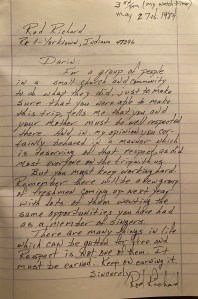 3:00 pm (my watch time)
May 27th, 1984
Rod Richard
Re #1- Yorktown, Indiana 47396
Darin:
For a group of people
in a small church and community
to do what they did, just to make
sure that you were able to make
this trip, tells me that you and
your Mother must be well respected
there. And, in my opinion you cer-
tainly behaved in a manner which
is deserving of that respect, as did
most everyone on the trip with us.
But you must keep working hard.
Remember there will be a new group
of freshmen coming up next year
with lots of them wanting the
same opportunities you have had
as a member of Singers.
There are many things in life
which can be gotten for free and
Respect is not one of them. It
must be earned. Keep on earning it.
Sincerely,
Rod Richard